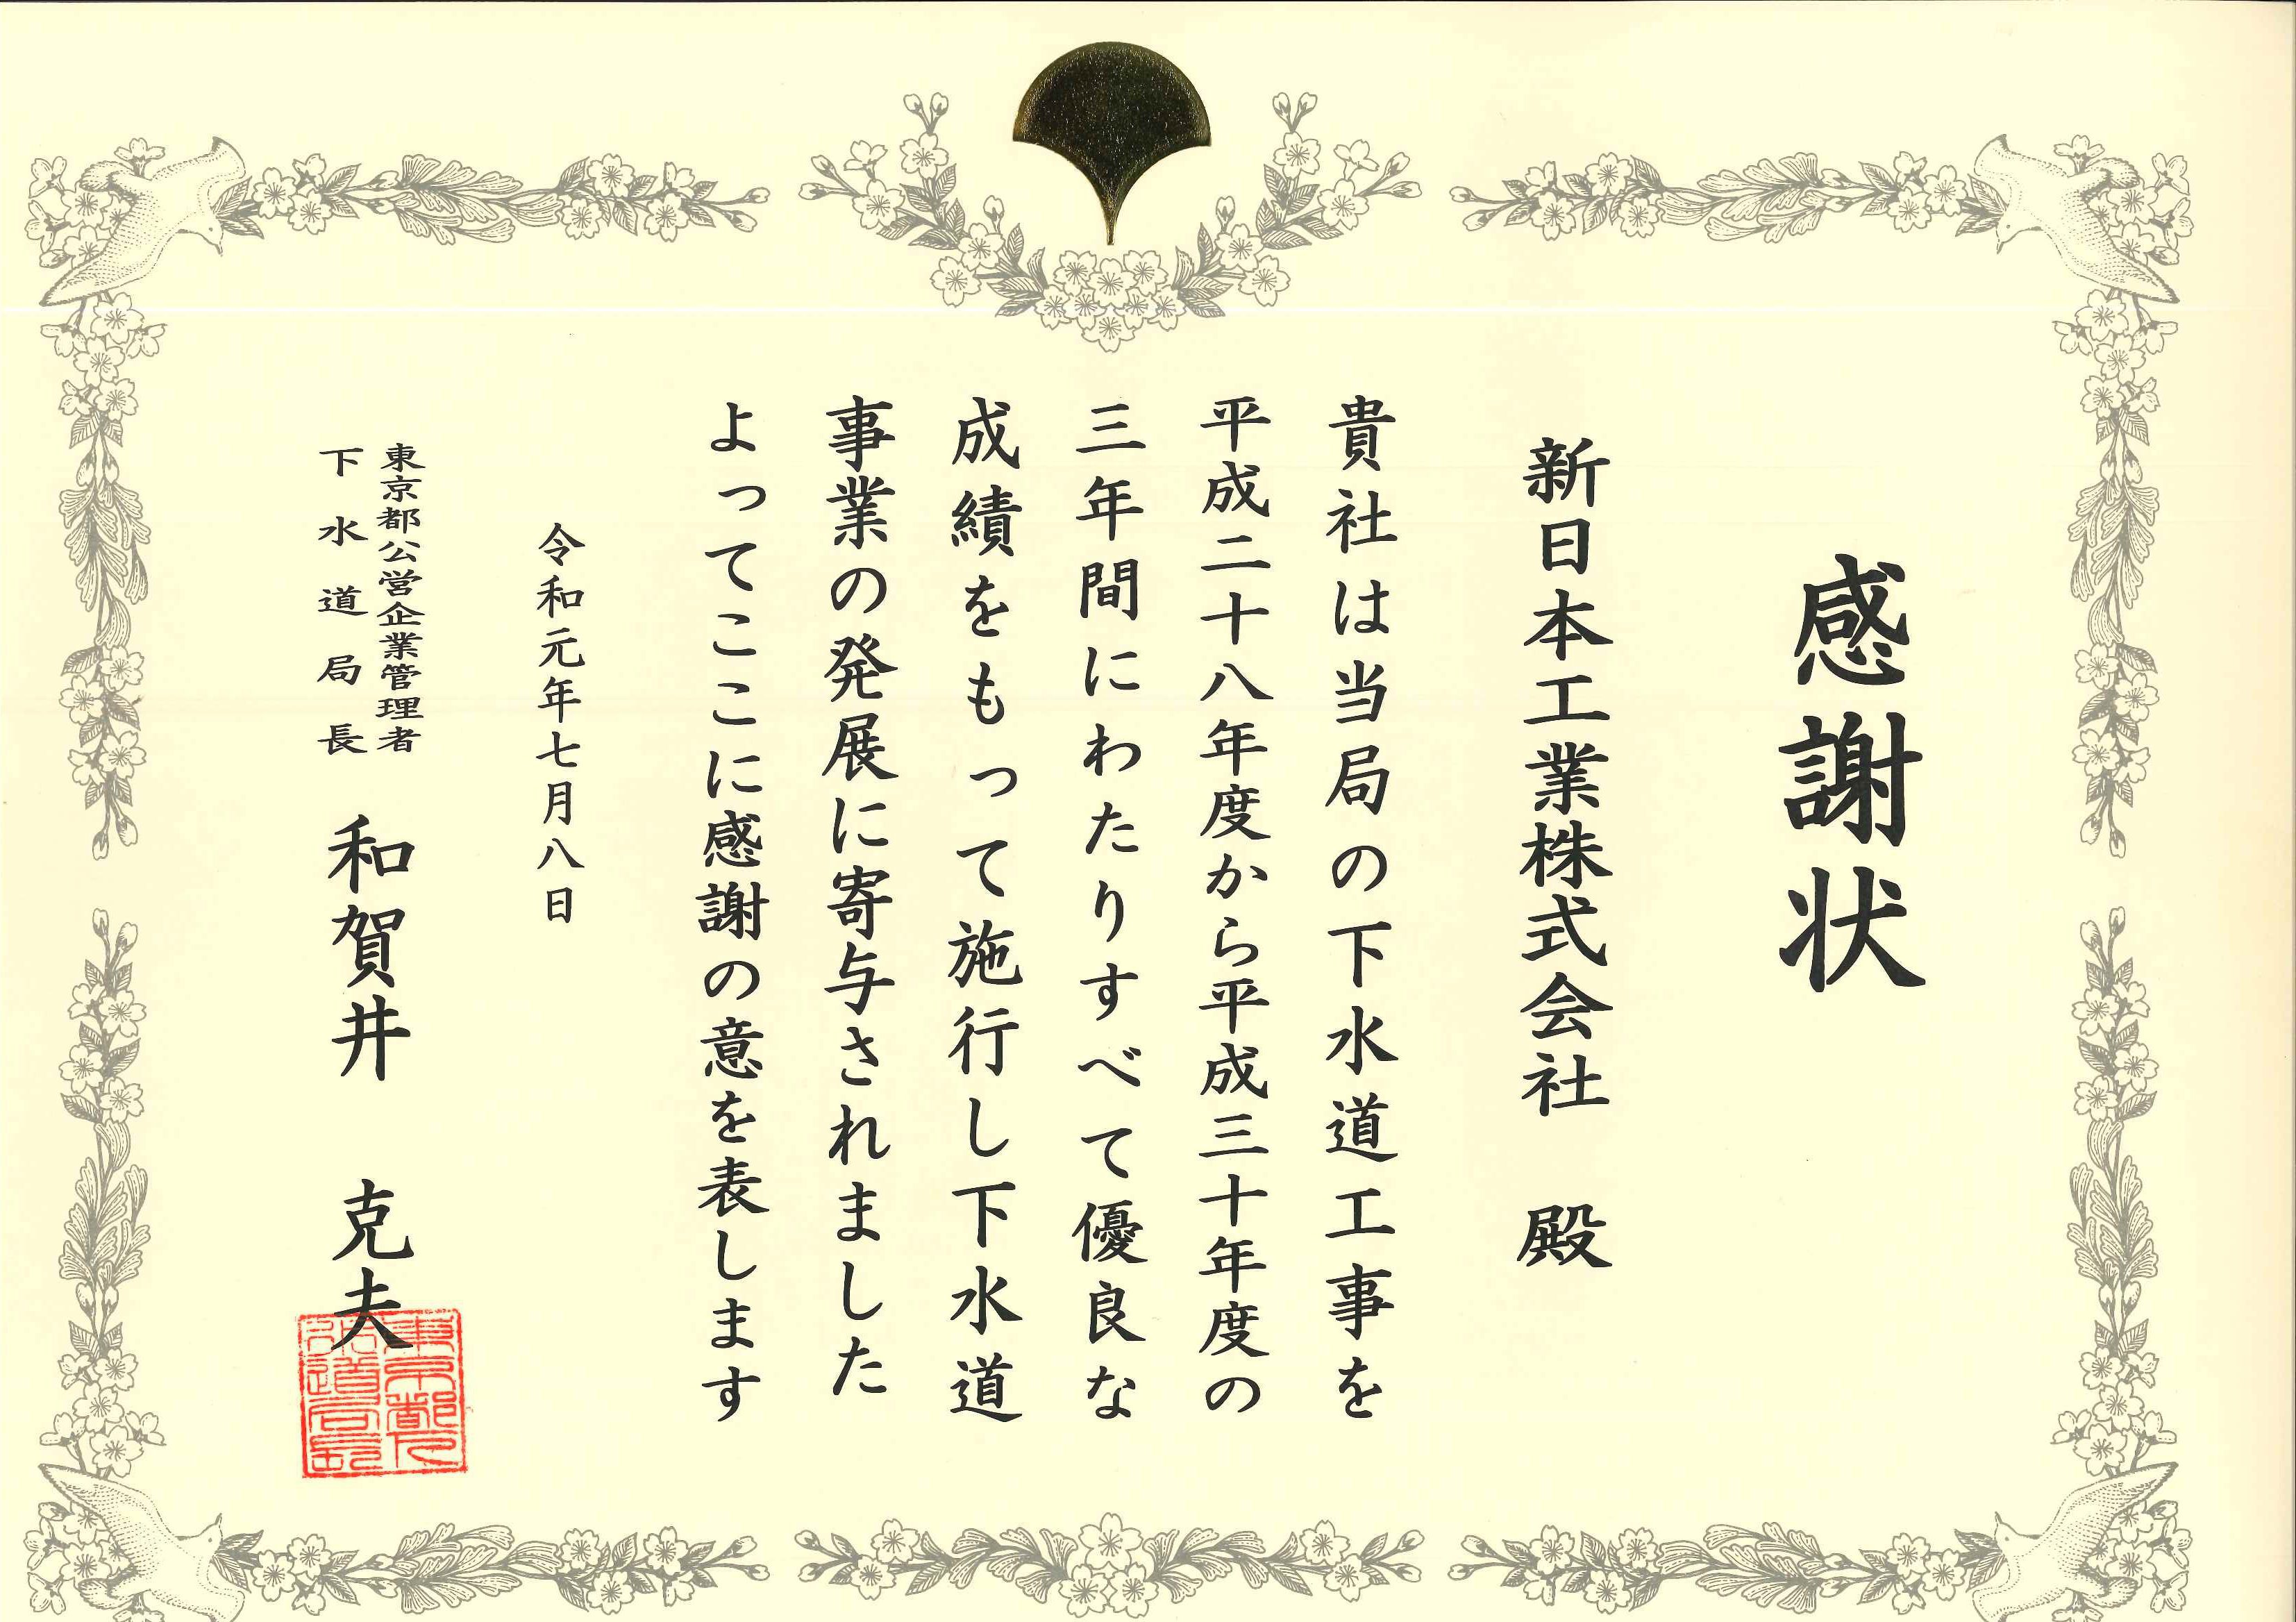 感謝状
新日本工業株式会社　殿
貴社は当局の下水道工事を
平成二十八年度から平成三十年度の
三年間にわたりすべて優良な
成績をもって施行し下水道
事業の発展に寄与されました
よってここに感謝の意を表します
令和元年七月八日
東京都公営企業管理者
下水道局長
和賀井　克夫
東京都下
水道局長